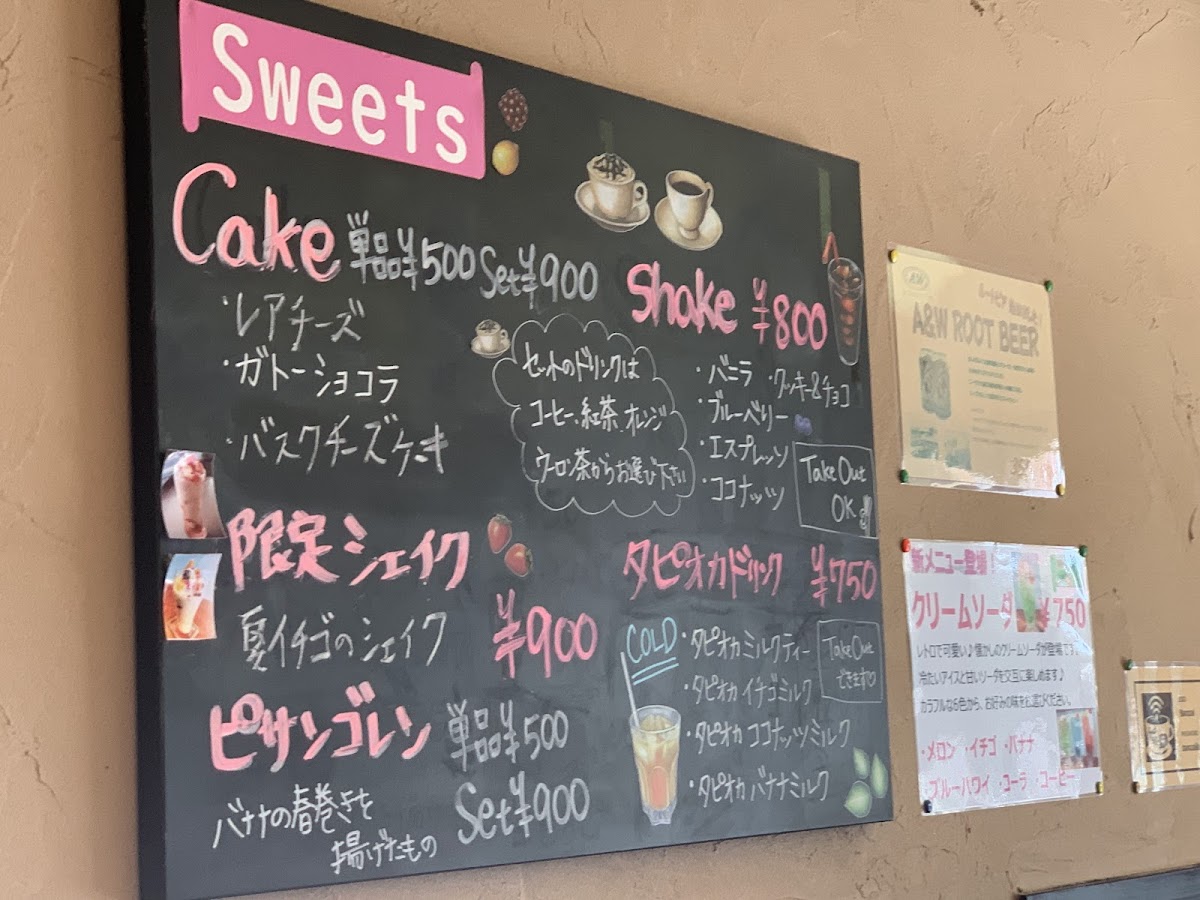 Sweets
Cake 単品¥500 Set¥900
・レアチーズ
・ガトーショコラ
・バスクチーズケーキ
セットのドリンクは
コーヒー、紅茶、オレンジ
ウーロン茶からお選び下さい
Shake ¥800
・バニラ ・クッキー&チョコ
・ブルーベリー
・エスプレッソ
・ココナッツ
Take Out
OK
限定シェイク
夏イチゴのシェイク ¥900
ピサンゴレン 単品¥500
Set¥900
バナナの春巻きを
揚げたもの
タピオカドリンク ¥750
COLD
・タピオカミルクティー
・タピオカイチゴミルク
・タピオカココナッツミルク
・タピオカバナナミルク
Take Out
できます♡
A&W
A&W ROOT BEER
新メニュー登場!
クリームソーダ ¥750
レトロで可愛い♪懐かしのクリームソーダが登場です。
冷たいアイスと甘いソーダを交互に楽しめます♪
カラフルな6色から、お好みの味をお選びください。
・メロン ・イチゴ ・バナナ
・ブルーハワイ ・コーラ ・コーヒー